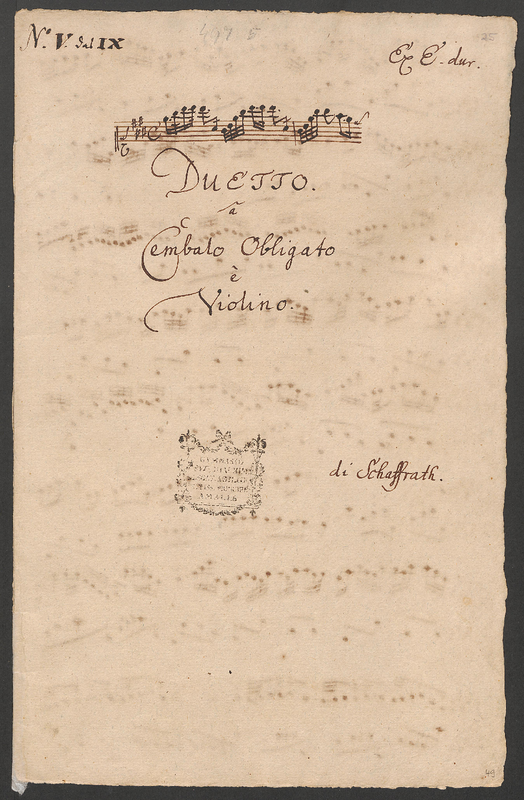 N.º V. dal IX
497 5
25
Ex E. dur.
DUETTO.
â
Cembalo Obligato
è
Violino.
di Schaffrath.
49